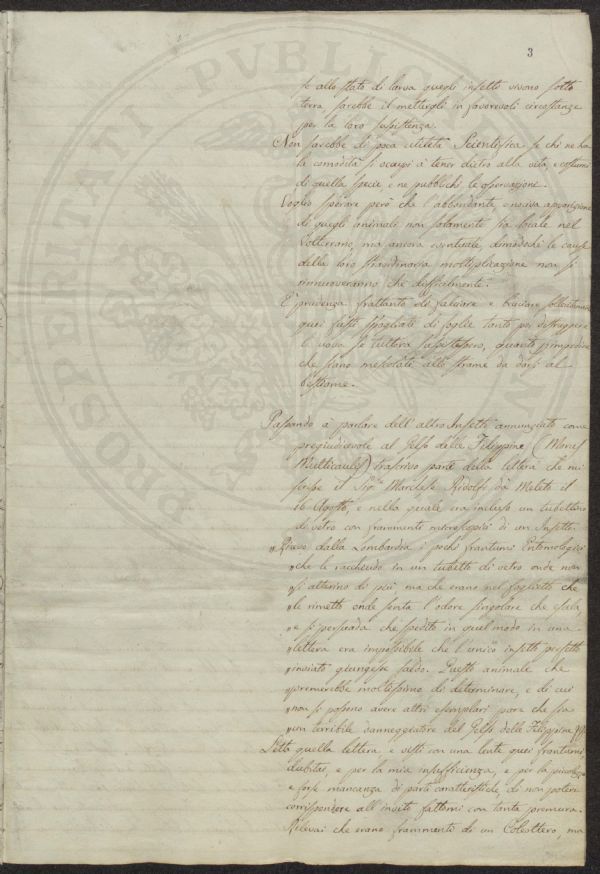 3
se allo stato di larva quegli insetti vivono sotto
terra, sarebbe il mettergli in favorevoli circostanze
per la loro sussistenza.
Non sarebbe di poca utilità Scientifica se chi ne ha
la comodità si occupi a tener dietro alla vita, e costumi
di quella specie, e ne pubblichi le osservazioni.
Voglio sperare però che l'abbondante, e nociva apparizione
di quegli animali non solamente sia locale nel
Volterrano, ma ancora eventuale, dimodochè le cause
della loro straordinaria moltiplicazione non si
rinnuoveranno che difficilmente.
E' prudenza frattanto di falciare e bruciare sollecitamente
quei fusti spogliati di foglie tanto per distruggere
le uova se tuttora sussistessero, quanto p impedire
che siano mescolati allo strame da darsi al
bestiame.
Passando à parlare dell'altro Insetto annunziato come
pregiudicevole al Gelso delle Filippine (Morus
Multicaulis) trascrivo parte della lettera che mi
scrisse il Sig.re Marchese Ridolfi da Meleto il
16 Agosto, e nella quale era incluso un tubettino
di vetro con frammenti microscopici di un Insetto
"Ricevo dalla Lombardia i pochi frantumi Entomologici
"che le racchiudo in un tubetto di vetro onde non
"si alterino di più, ma che erano nel foglietto che
"le rimetto onde senta l'odore singolare che esala,
"e si persuada che spedito in quel modo in una
"lettera era impossibile che l'unico insetto perfetto
"inviato giungesse saldo. Questo animale che
"premerebbe moltissimo di determinare, e di cui
"non si possono avere altri esemplari pare che sia
"un terribile danneggiatore del Gelso delle Filippine
Letta quella lettera, e visti con una lente quei frantumi
dubitai, e per la mia insufficienza, e per la piccolezza
e forse mancanza di parti caratteristiche, di non potere
corrispondere all'invito fattomi con tanta premura.
Rilevai che erano frammenti di un Coleottero, ma